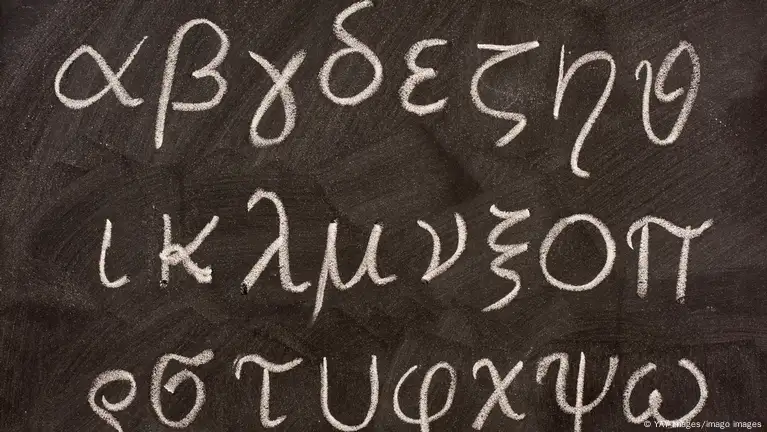 α β γ δ ε ζ η θ
ι κ λ μ ν ξ ο π
ρ σ τ υ φ χ ψ ω
© YAY Images/imago images